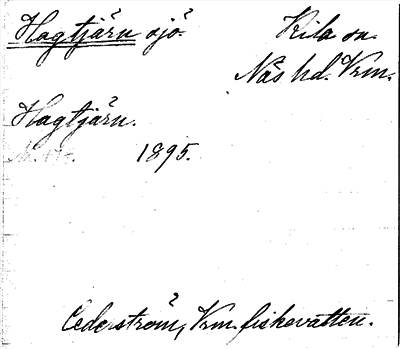 Hagtjärn sjö. Kila sn.
Näs hd. Vrm.
Hagtjärn.
1895.
Cederström, Vrm. fiskevatten.